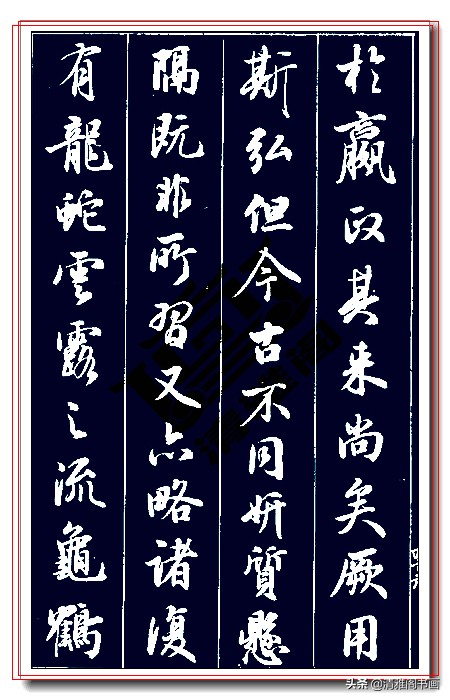 於嬴政其来尚矣厥用
斯弘但今古不同妍質懸
隔既非所習又亦略諸復
有龍蛇雲露之流龜鶴
头条 @清雅阁书画